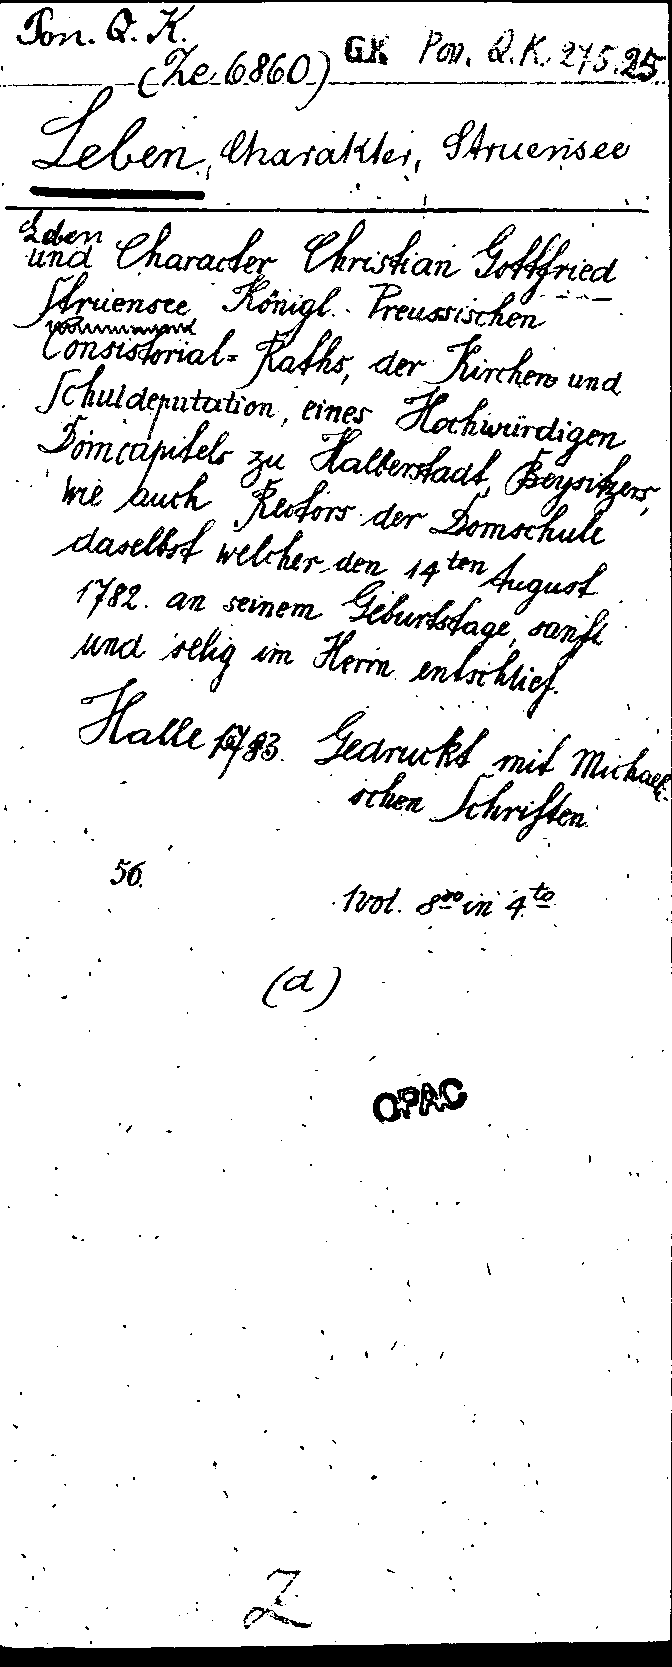 Pon. Q. K.
(Ze 6860) GK Pon. Q. K. 275.25.
Leben, Charakter, Struensee
Leben
und Character Christian Gottfried
Struensee Königl. Preussischen
Consistorial-Raths, der Kirchen und
Schuldeputation, eines Hochwürdigen
Domcapitels zu Halberstadt, Beysitzers,
wie auch Rectors der Domschule
daselbst welcher den 14ten August
1782. an seinem Geburtstage, sanft
und selig im Herrn entschlief.
Halle 1783. Gedruckt mit Michaeli-
schen Schriften
56.
1 vol. 8vo in 4to
(d)
OPAC
Z